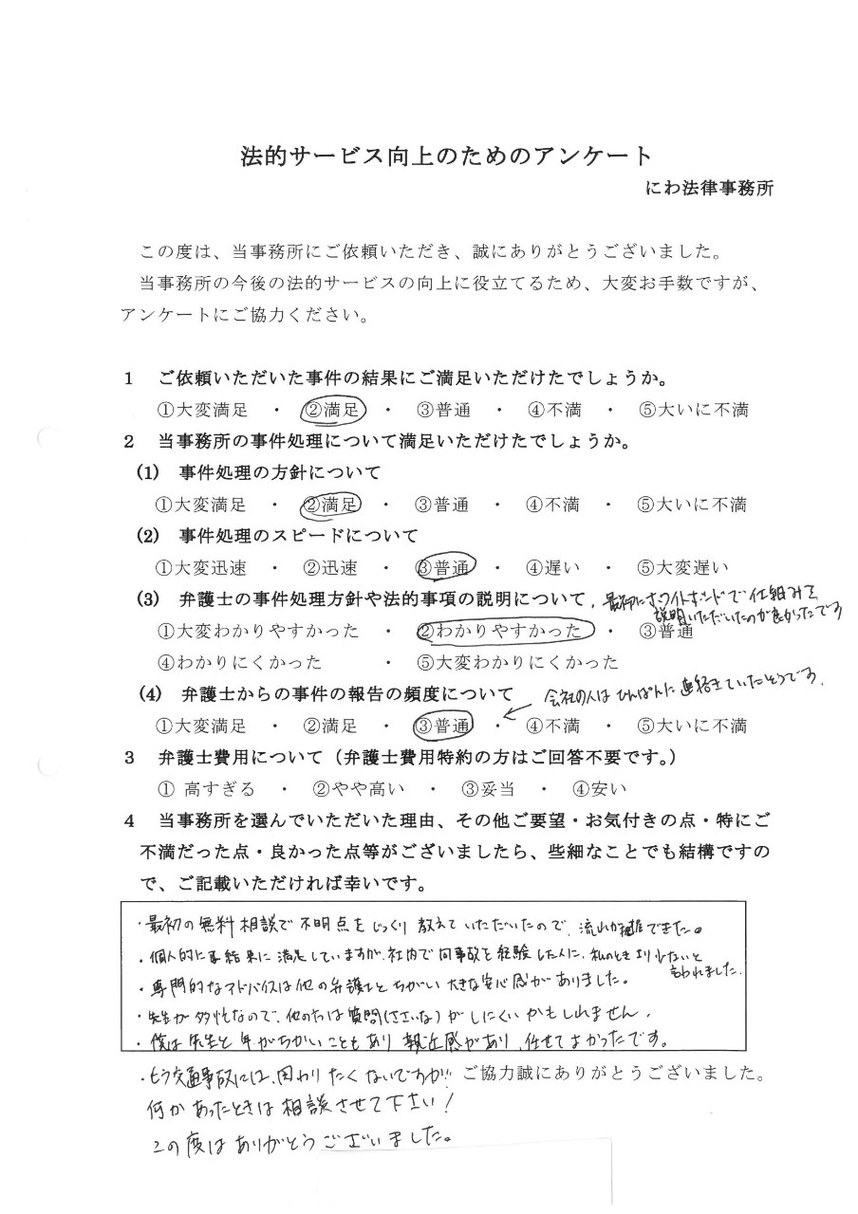 法的サービス向上のためのアンケート
にわ法律事務所
この度は、当事務所にご依頼いただき、誠にありがとうございました。
当事務所の今後の法的サービスの向上に役立てるため、大変お手数ですが、
アンケートにご協力ください。
1 ご依頼いただいた事件の結果にご満足いただけたでしょうか。
①大変満足 ・ ②満足 ・ ③普通 ・ ④不満 ・ ⑤大いに不満
2 当事務所の事件処理について満足いただけたでしょうか。
(1) 事件処理の方針について
①大変満足 ・ ②満足 ・ ③普通 ・ ④不満 ・ ⑤大いに不満
(2) 事件処理のスピードについて
①大変迅速 ・ ②迅速 ・ ③普通 ・ ④遅い ・ ⑤大変遅い
(3) 弁護士の事件処理方針や法的事項の説明について
最初にホワイトボードで仕組みを
説明いただいたのが良かったです
①大変わかりやすかった ・ ②わかりやすかった ・ ③普通
④わかりにくかった ・ ⑤大変わかりにくかった
(4) 弁護士からの事件の報告の頻度について
会社の人はひんぱんに連絡きていたそうです。
①大変満足 ・ ②満足 ・ ③普通 ・ ④不満 ・ ⑤大いに不満
3 弁護士費用について（弁護士費用特約の方はご回答不要です。）
① 高すぎる ・ ②やや高い ・ ③妥当 ・ ④安い
4 当事務所を選んでいただいた理由、その他ご要望・お気付きの点・特にご
不満だった点・良かった点等がございましたら、些細なことでも結構ですの
で、ご記載いただければ幸いです。
・最初の無料相談で不明点をじっくり教えていただいたので、流れが把握できた。
・個人的に結果に満足していますが、社内で同事故を経験した人に、私のときより少ないと
言われました。
・専門的なアドバイスは他の弁護士とちがい大きな安心感がありました。
・先生が多忙なので、他の方は質問(ささいな)がしにくいかもしれません。
・僕は先生と年がちかいこともあり親近感があり、任せてよかったです。
・もう交通事故には、関わりたくないですが!!
ご協力誠にありがとうございました。
何かあったときは相談させて下さい!
この度はありがとうございました。